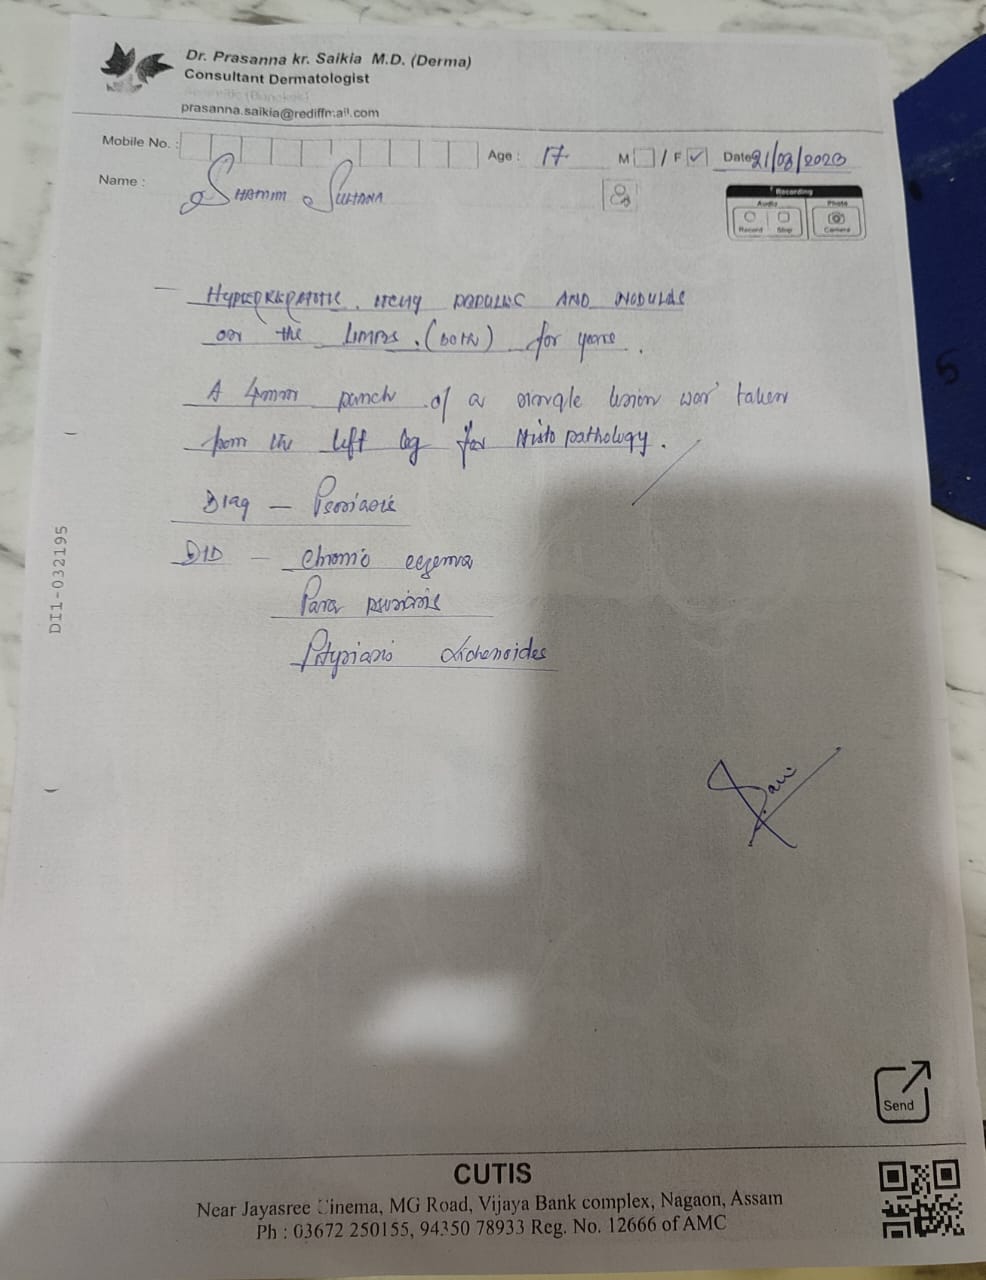 Dr. Prasanna kr. Saikia M.D. (Derma)
Consultant Dermatologist
prasanna.saikia@rediffmail.com
Mobile No. : Age : 17 M / F ✓ Date 21/08/2023
Name : Shamim Sultana
Recording
Audio Photo
Record Stop Camera
- Hyperkeratotic itchy papules and nodules
on the limbs. (both) for years.
A 4mm punch of a single lesion was taken
from the left leg for Histopathology.
Diag - Psoriasis
D/D - Chronic eczema
Para psoriasis
Pityriasis Lichenoides
DI1-032195
Send
CUTIS
Near Jayasree Cinema, MG Road, Vijaya Bank complex, Nagaon, Assam
Ph : 03672 250155, 94350 78933 Reg. No. 12666 of AMC
5